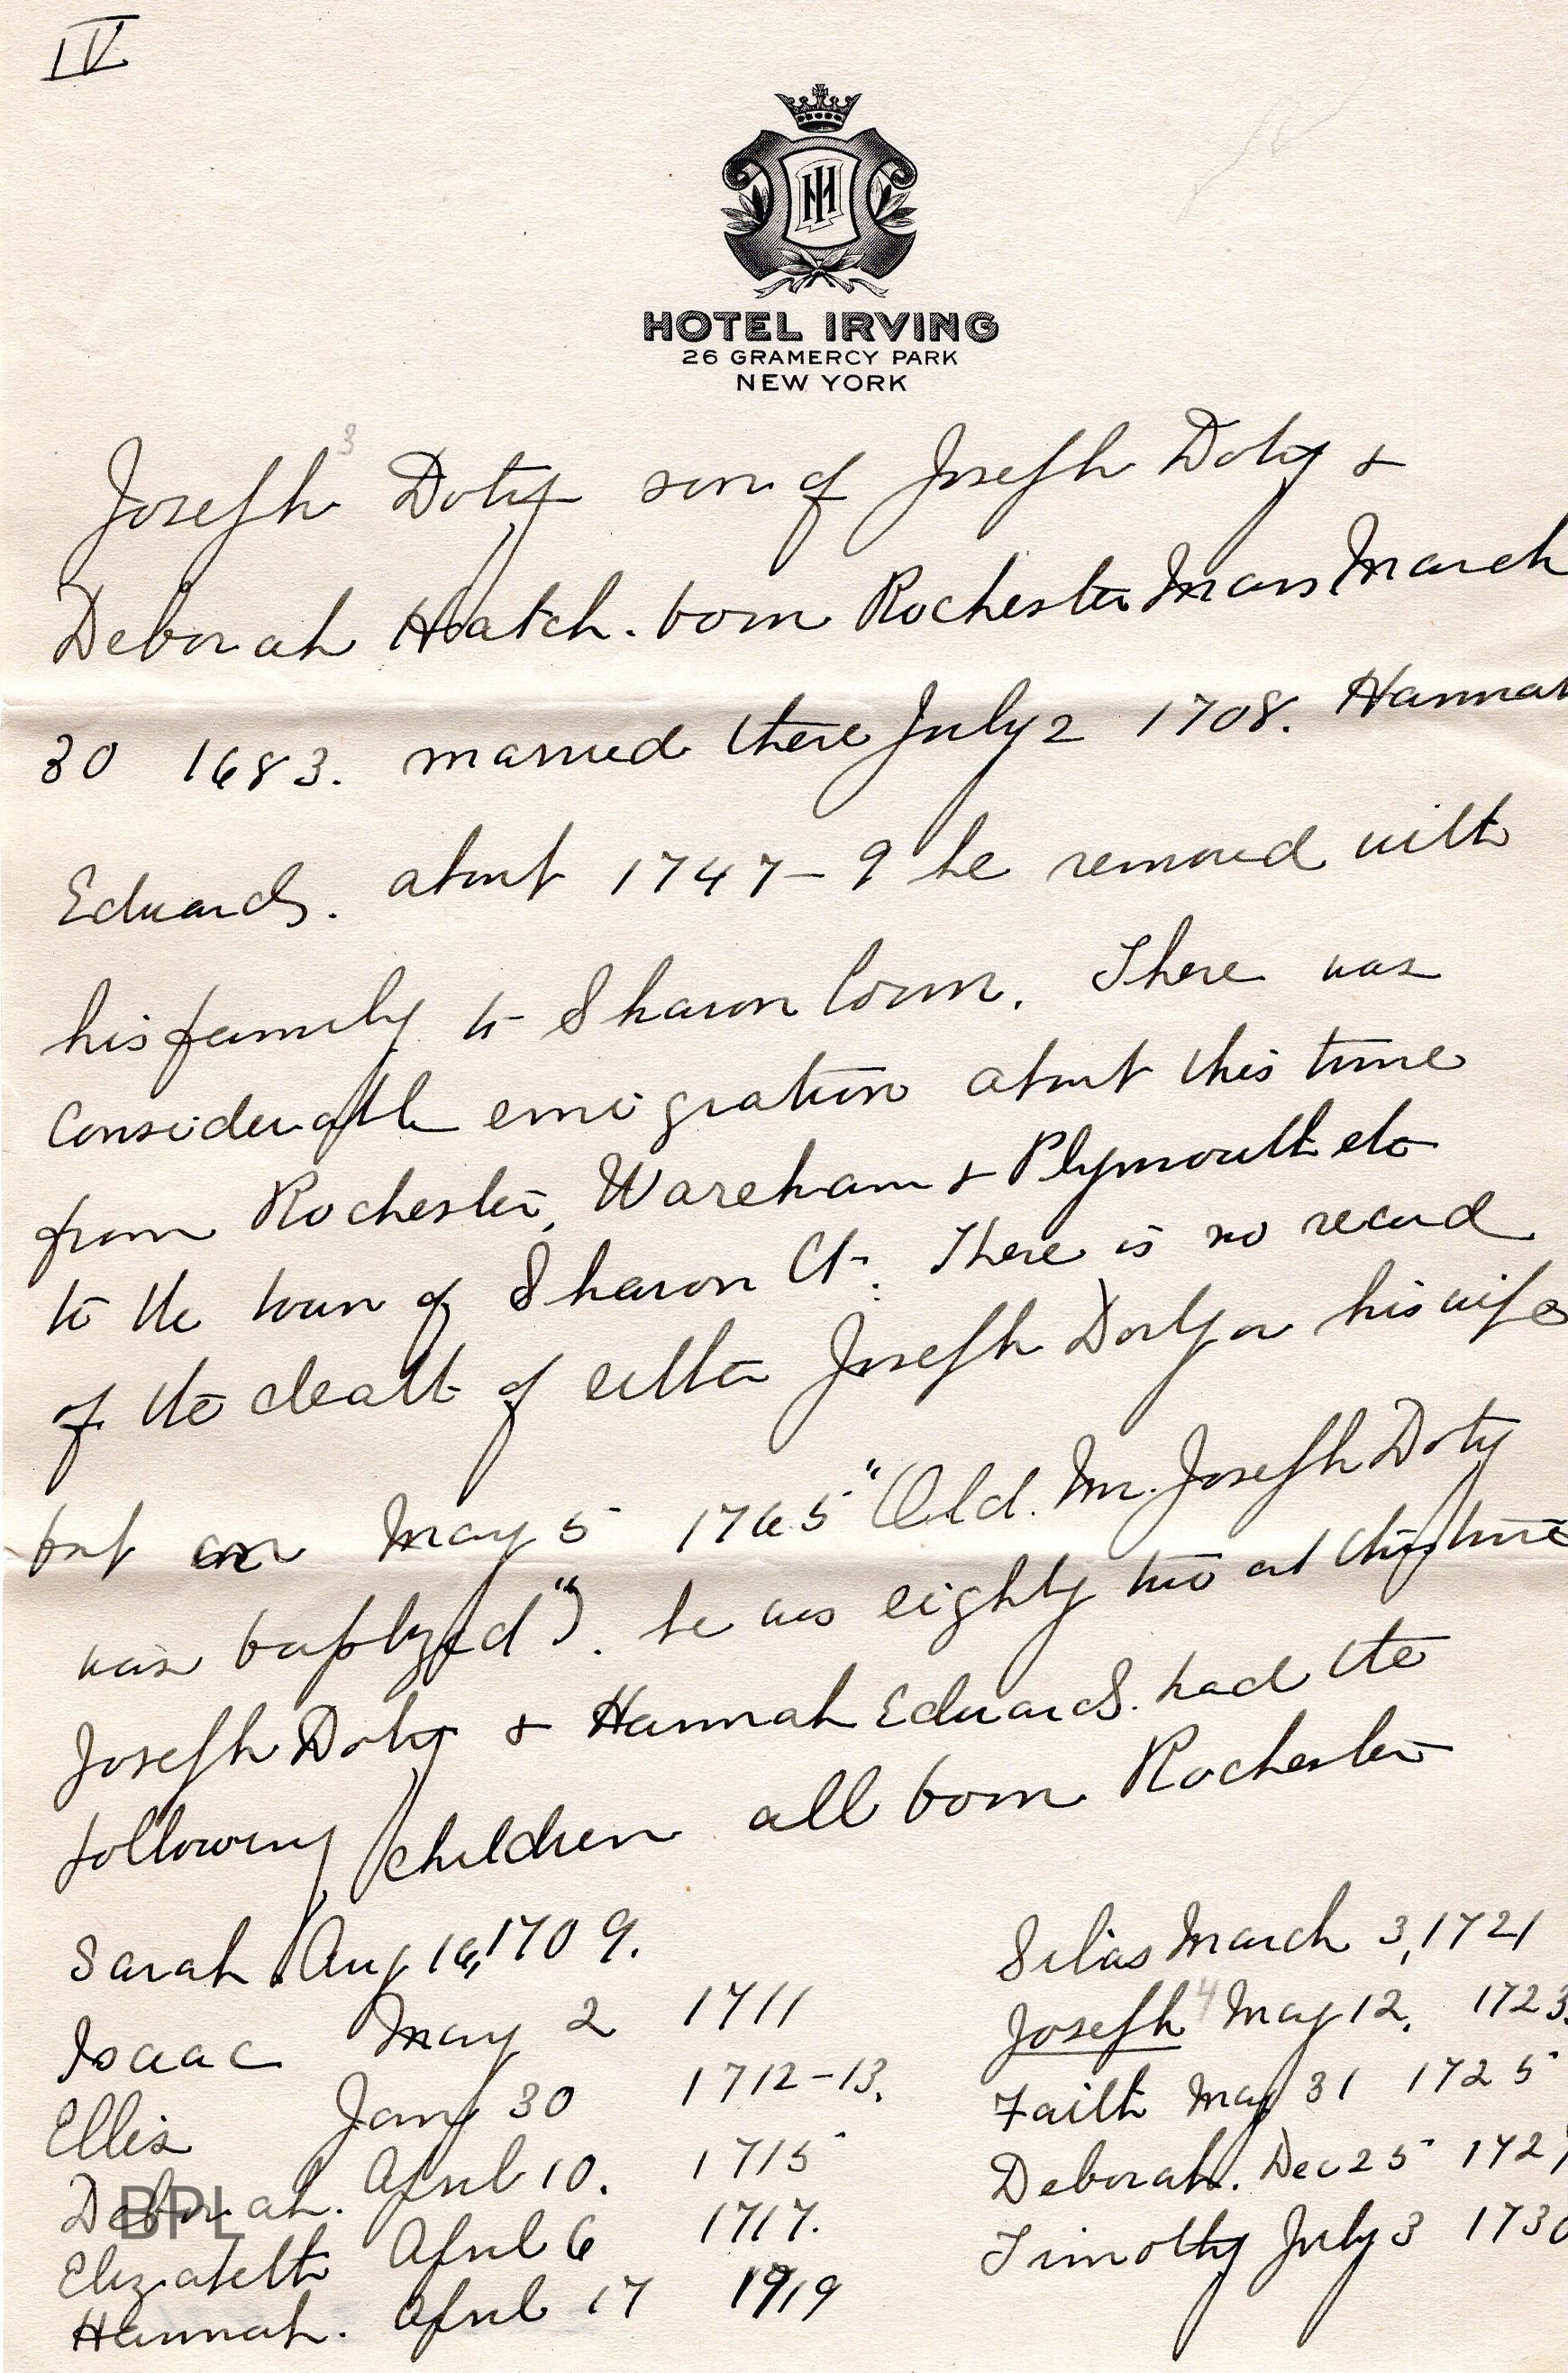 IV
HI
HOTEL IRVING
26 GRAMERCY PARK
NEW YORK
Joseph 3 Doty son of Joseph Doty &
Deborah Hatch. born Rochester Mass March
30 1683. married there July 2 1708. Hannah
Edwards. about 1747-9 he removed with
his family to Sharon Conn. There was
Considerable emigration about this time
from Rochester, Wareham & Plymouth etc
to the town of Sharon Ct. There is no record
of the death of either Joseph Doty or his wife
but on May 5 1765 "(Old. Mr. Joseph Doty
was baptized"). he was eighty two at this time
Joseph Doty & Hannah Edwards. had the
following children all born Rochester
Sarah Aug 16, 1709.
Isaac May 2 1711
Ellis Jany 30 1712-13.
Deborah. April 10. 1715
Elizabeth April 6 1717.
Hannah. April 17 1719
Silas March 3, 1721
Joseph 4 May 12, 1723.
Faith May 31 1725
Deborah. Dec 25 1727
Timothy July 3 1730
BPL